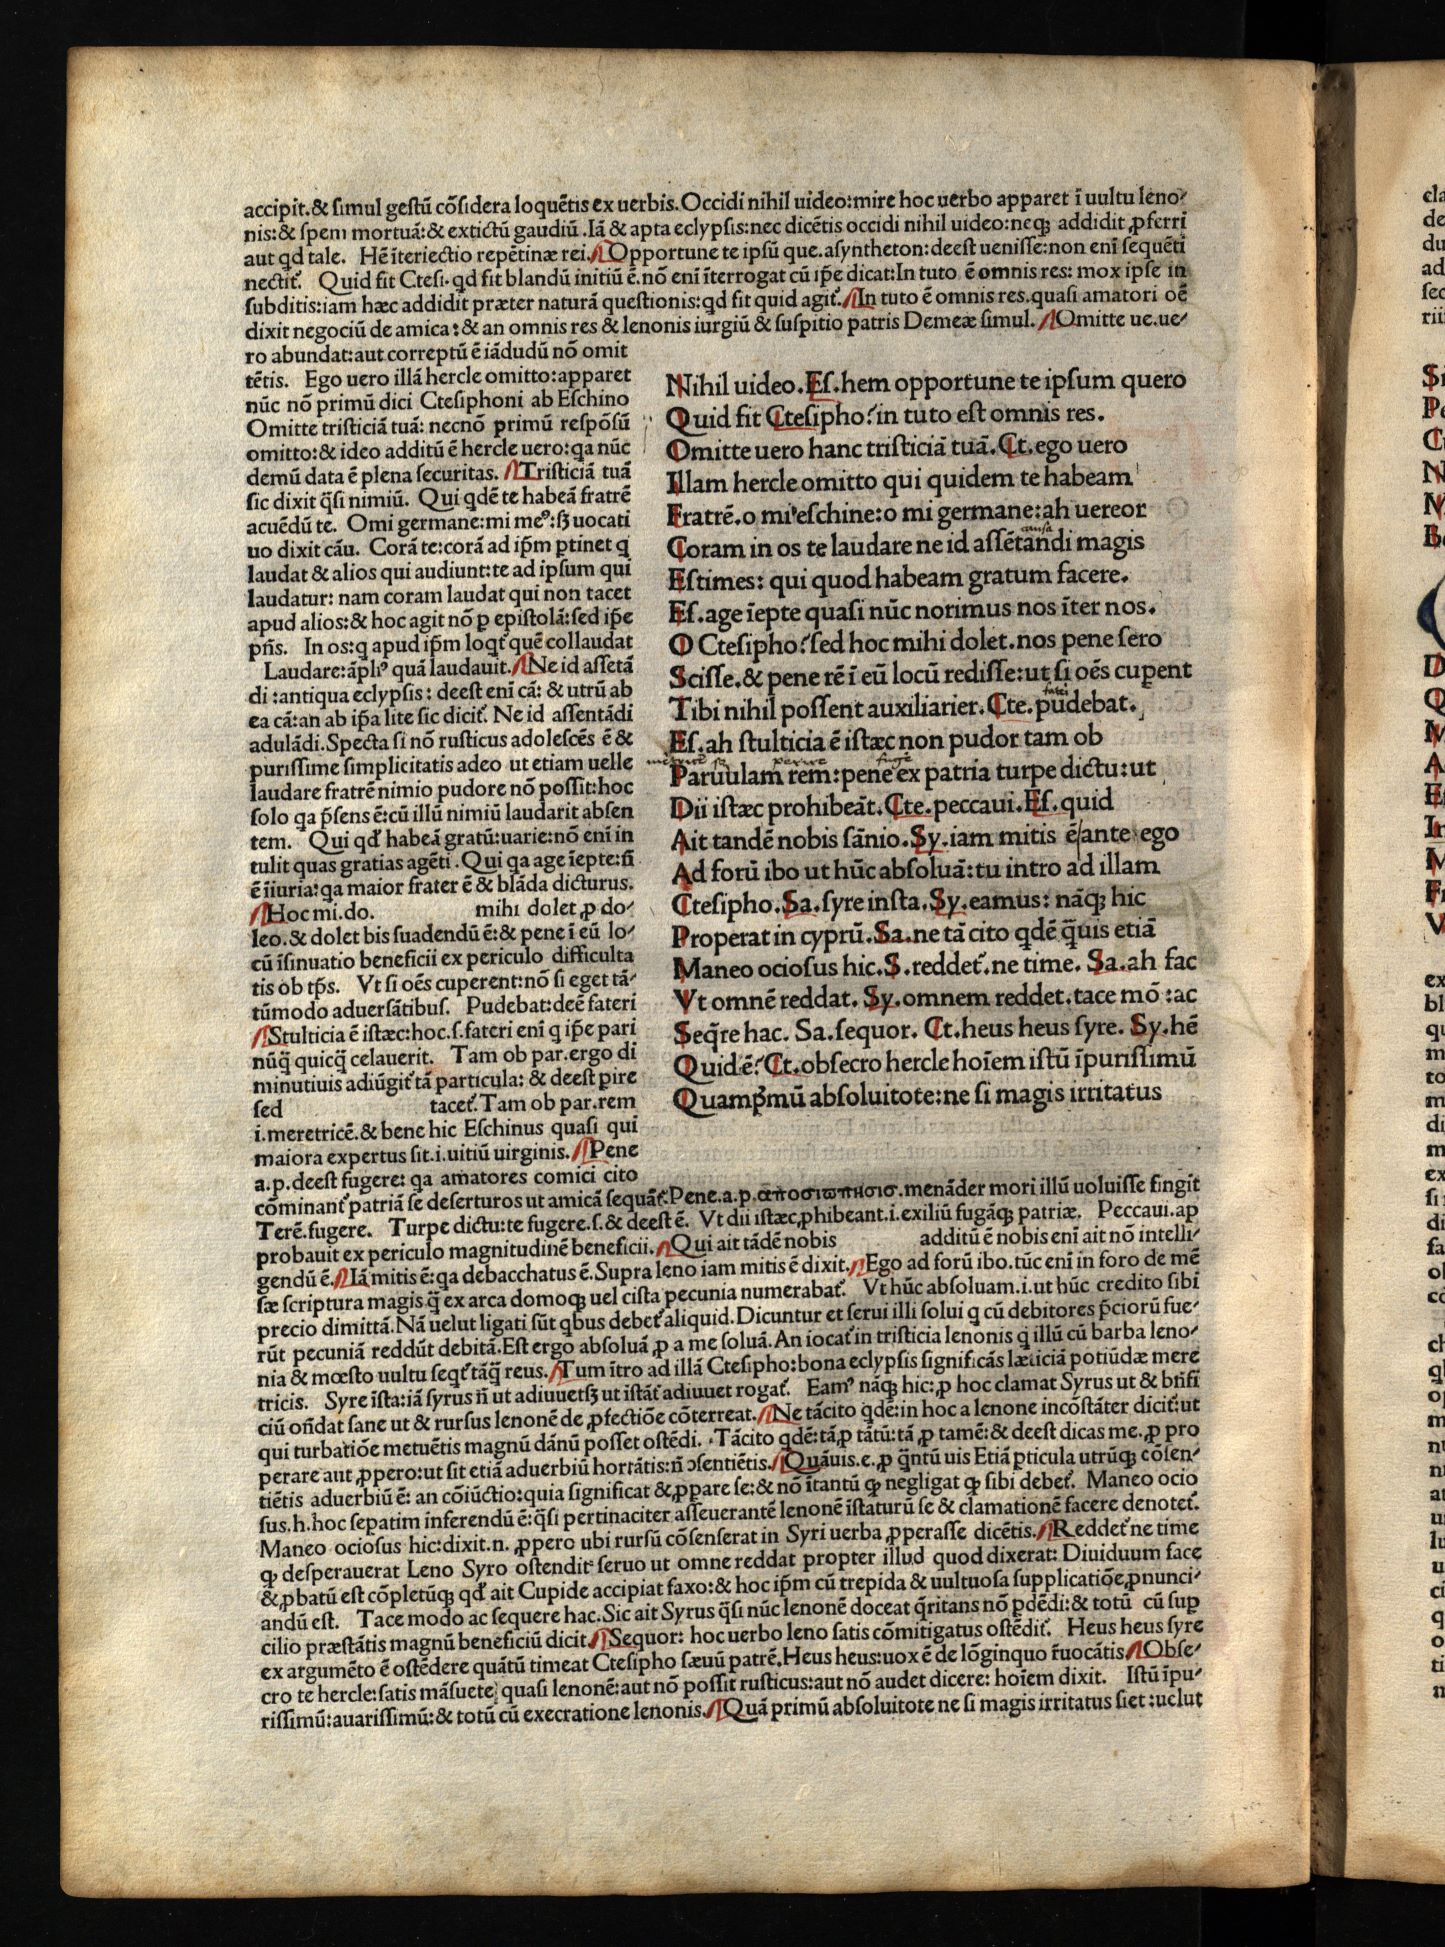 accipit.& ſimul geſtū cōſidera loquētis ex uerbis.Occidi nihil uideo:mire hoc uerbo apparet ī uultu leno⸗
nis:& ſpem mortuā:& extictū gaudiū .Iā & apta eclypſis:nec dicētis occidi nihil uideo:neqꝫ addidit ꝓferri
aut qd tale. Hē īteriectio repētinæ rei. Opportune te ipſū que.aſyntheton:deeſt ueniſſe:non enī ſequēti
nectit᷑. Quid fit Cteſi. qd fit blandū initiū ē.nō enī īterrogat cū ip̄e dicat:In tuto ē omnis res: mox ipſe in
ſubditis:iam hæc addidit præter naturā queſtionis:qd fit quid agit᷑. In tuto ē omnis res.quaſi amatori oē
dixit negociū de amica: & an omnis res & lenonis iurgiū & ſuſpitio patris Demeæ ſimul. Omitte ue.ue⸗
ro abundat:aut correptū ē iādudū nō omit
tētis. Ego uero illā hercle omitto:apparet
nūc nō primū dici Cteſiphoni ab Eſchino
Omitte triſticiā tuā: necnō primū reſpōſū
omitto:& ideo additū ē hercle uero:qa nūc
demū data ē plena ſecuritas. Triſticiā tuā
ſic dixit q̄ſi nimiū. Qui qdē te habeā fratrē
acuēdū te. Omi germane:mi meꝰ:ſꝫ uocati
uo dixit cāu. Corā te:corā ad ip̄m ꝑtinet q
laudat & alios qui audiunt:te ad ipſum qui
laudatur: nam coram laudat qui non tacet
apud alios:& hoc agit nō ꝑ epiſtolā:ſed ip̄e
pn̄s. In os:q apud ip̄m loqt᷑ quē collaudat
Laudare:āpliꝰ quā laudauit. Ne id aſſetā
di :antiqua eclypſis: deeſt enī cā: & utrū ab
ea cā:an ab ip̄a lite ſic dicit᷑. Ne id aſſentādi
adulādi.Specta ſi nō ruſticus adoleſcēs ē &
puriſſime ſimplicitatis adeo ut etiam uelle
laudare fratrē nimio pudore nō poſſit:hoc
ſolo qa p̄ſens ē:cū illū nimiū laudarit abſen
tem. Qui qd' habeā gratū:uarie:nō enī in
tulit quas gratias agēti .Qui qa age īepte:ſī
ē īiuria:qa maior frater ē & blāda dicturus.
Hoc mi.do. mihi dolet ꝓ do⸗
leo.& dolet bis ſuadendū ē:& pene ī eū lo⸗
cū īſinuatio beneficii ex periculo difficulta
tis ob tp̄s. Vt ſi oēs cuperent:nō ſi eget tā⸗
tūmodo aduerſātibuſ. Pudebat:deē fateri
Stulticia ē iſtæc:hoc.ſ.fateri enī q ip̄e pari
nūq̄ quicq̄ celauerit. Tam ob par.ergo di
minutiuis adiūgit᷑ tā particula: & deeſt ꝑire
ſed tacet᷑.Tam ob par.rem
i.meretricē.& bene hic Eſchinus quaſi qui
maiora expertus ſit.i.uitiū uirginis. Pene
a.p.deeſt fugere: qa amatores comici cito
Nihil uideo.Eſ.hem opportune te ipſum quero
Quid fit Cteſipho?in tuto eſt omnis res.
Omitte uero hanc triſticiā tuā.Ct.ego uero
Illam hercle omitto qui quidem te habeam
Fratrē.o mi eſchine:o mi germane:ah uereor
causa
Coram in os te laudare ne id aſſētandi magis
Eſtimes: qui quod habeam gratum facere.
Eſ.age īepte quaſi nūc norimus nos īter nos.
O Cteſipho?ſed hoc mihi dolet.nos pene ſero
Sciſſe.& pene rē ī eū locū rediſſe:ut ſi oēs cuꝑent
fateri
Tibi nihil poſſent auxiliarier.Cte.pudebat.
Eſ.ah ſtulticia ē iſtæc non pudor tam ob
Paruulam rem:pene ex patria turpe dictu:ut
Dii iſtæc prohibeāt.Cte.peccaui.Eſ.quid
Ait tandē nobis ſānio.Sy.iam mitis ē/ante ego
Ad forū ibo ut hūc abſoluā:tu intro ad illam
Cteſipho.Sa.ſyre inſta.Sy.eamus: nāqꝫ hic
Properat in cyprū.Sa.ne tā cito qdē q̄uis etiā
Maneo ocioſus hic.S.reddet᷑.ne time. Sa.ah fac
Vt omnē reddat. Sy.omnem reddet.tace mō :ac
Seq̄re hac. Sa.ſequor. Ct.heus heus ſyre. Sy.hē
Quid ē?Ct.obſecro hercle hoīem iſtū īpuriſſimū
Quamp̄mū abſoluitote:ne ſi magis irritatus
cōminant᷑ patriā ſe deſerturos ut amicā ſequāt᷑.Pene.a.p. menāder mori illū uoluiſſe fingit
Terē.fugere. Turpe dictu:te fugere.ſ.& deeſt ē. Vt dii iſtæc ꝓhibeant.i.exiliū fugāqꝫ patriæ. Peccaui.ap
probauit ex periculo magnitudinē beneficii. Qui ait tādē nobis additū ē nobis enī ait nō intelli⸗
gendū ē. Iā mitis ē:qa debacchatus ē.Supra leno iam mitis ē dixit. Ego ad forū ibo.tūc enī in foro de mē
ſæ ſcriptura magis q̄ ex arca domoqꝫ uel ciſta pecunia numerabat᷑. Vt hūc abſoluam.i.ut hūc credito ſibi
precio dimittā.Nā uelut ligati ſūt qbus debet᷑ aliquid.Dicuntur et ſerui illi ſolui q cū debitores p̄ciorū fue⸗
rūt pecuniā reddūt debitā.Eſt ergo abſoluā ꝓ a me ſoluā.An iocat᷑ in triſticia lenonis q illū cū barba leno⸗
nia & mœſto uultu ſeqt᷑ tāq̄ reus. Tum ītro ad illā Cteſipho:bona eclypſis ſignificās lætitiā potiūdæ mere
tricis. Syre īſta:iā ſyrus n̄ ut adiuuetſꝫ ut iſtāt᷑ adiuuet rogat᷑. Eamꝰ nāqꝫ hic:ꝓ hoc clamat Syrus ut & bn̄fi
ciū on̄dat ſane ut & rurſus lenonē de ꝓfectiōe cōterreat. Ne tācito qdē:in hoc a lenone incōſtāter dicit᷑:ut
qui turbatiōe metuētis magnū dānū poſſet oſtēdi. Tācito qdē:tā ꝓ tātū:tā ꝓ tamē:& deeſt dicas me.ꝓ pro
perare aut ꝓpero:ut ſit etiā aduerbiū hortātis:n̄ ɔſentiētis. Quāuis.e.ꝓ q̄ntū uis Etiā ꝑticula utrūqꝫ cōſen⸗
tiētis aduerbiū ē: an cōiūctio:quia ſignificat & ꝓꝑare ſe:& nō ītantū qꝫ negligat qꝫ ſibi debet᷑. Maneo ocio
ſus.h.hoc ſepatim inferendū ē:q̄ſi pertinaciter aſſeuerantē lenonē īſtaturū ſe & clamationē facere denotet᷑.
Maneo ocioſus hic:dixit.n. ꝓpero ubi rurſū cōſenſerat in Syri uerba ꝓperaſſe dicētis. Reddet᷑ ne time
qꝫ deſperauerat Leno Syro oſtendit ſeruo ut omne reddat propter illud quod dixerat: Diuiduum face
& ꝓbatū eſt cōpletūqꝫ qd' ait Cupide accipiat faxo:& hoc ip̄m cū trepida & uultuoſa ſupplicatiōe ꝓnunci⸗
andū eſt. Tace modo ac ſequere hac.Sic ait Syrus q̄ſi nūc lenonē doceat q̄ritans nō ꝑdēdi:& totū cū ſuꝑ
cilio præſtātis magnū beneficiū dicit. Sequor: hoc uerbo leno ſatis cōmitigatus oſtēdit᷑. Heus heus ſyre
ex argumēto ē oſtēdere quātū timeat Cteſipho ſæuū patrē.Heus heus:uox ē de lōginquo r̄uocātis Obſe⸗
cro te hercle:ſatis māſuete quaſi lenonē:aut nō poſſit ruſticus:aut nō audet dicere: hoīem dixit. Iſtū īpu⸗
riſſimū:auariſſimū:& totū cū execratione lenonis. Quā primū abſoluitote ne ſi magis irritatus ſiet :uelut